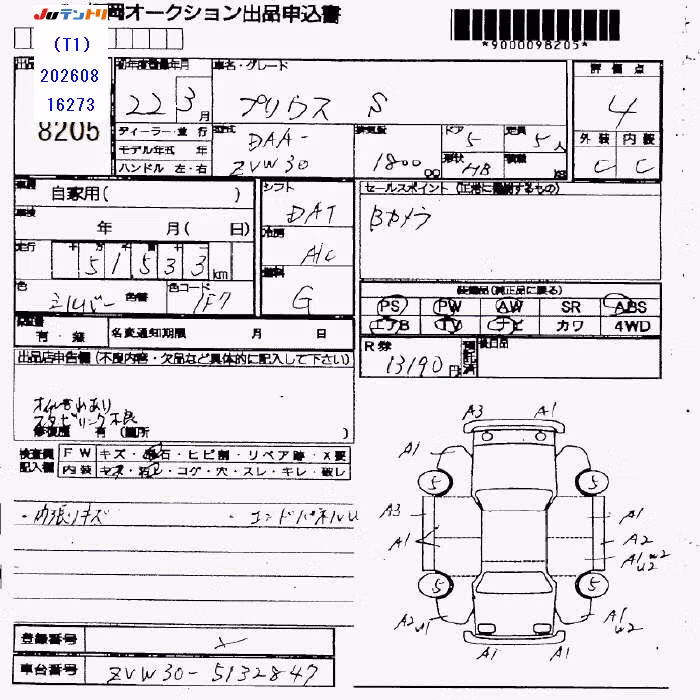 JUテントリ
岡オークション出品申込書
*9000098205*
(T1)
202608
16273
8205
初年度登録年月
22 3月
車名・グレード
プリウス S
評価点
4
外装 内装
C C
ディーラー・並行
モデル年式 年
ハンドル 左・右
型式
DAA-
ZVW30
排気量
1800 cc
ドア
5
形状
HB
定員
5人
積載
自家用( )
車検
年 月( 日)
走行
51533km
色
シルバー
色替
色コード
1F7
シフト
DAT
冷房
A/C
燃料
G
セールスポイント
Bカメラ
装備品(純正品に限る)
PS PW AW SR ABS
エアB TV ナビ カワ 4WD
有・無 名変通知期限 月 日
R券
13190円
預託済
後日品
出品店申告欄(不良内容・欠品など具体的に記入して下さい)
オイルもれあり
ステアリング不良
修復歴 有(箇所 )
検査員記入欄
FW キズ・飛石・ヒビ割・リペア跡・X要
内装 キズ・汚れ・コゲ・穴・スレ・キレ・破レ
・内張リキズ ・エンドパネルU
A3 A1
A1
5 5
A3 A1
A1 A2
A1 w2 u2
5 5
A2 u1 A1 u2
A1 A1
登録番号
車台番号 ZVW30-5132847